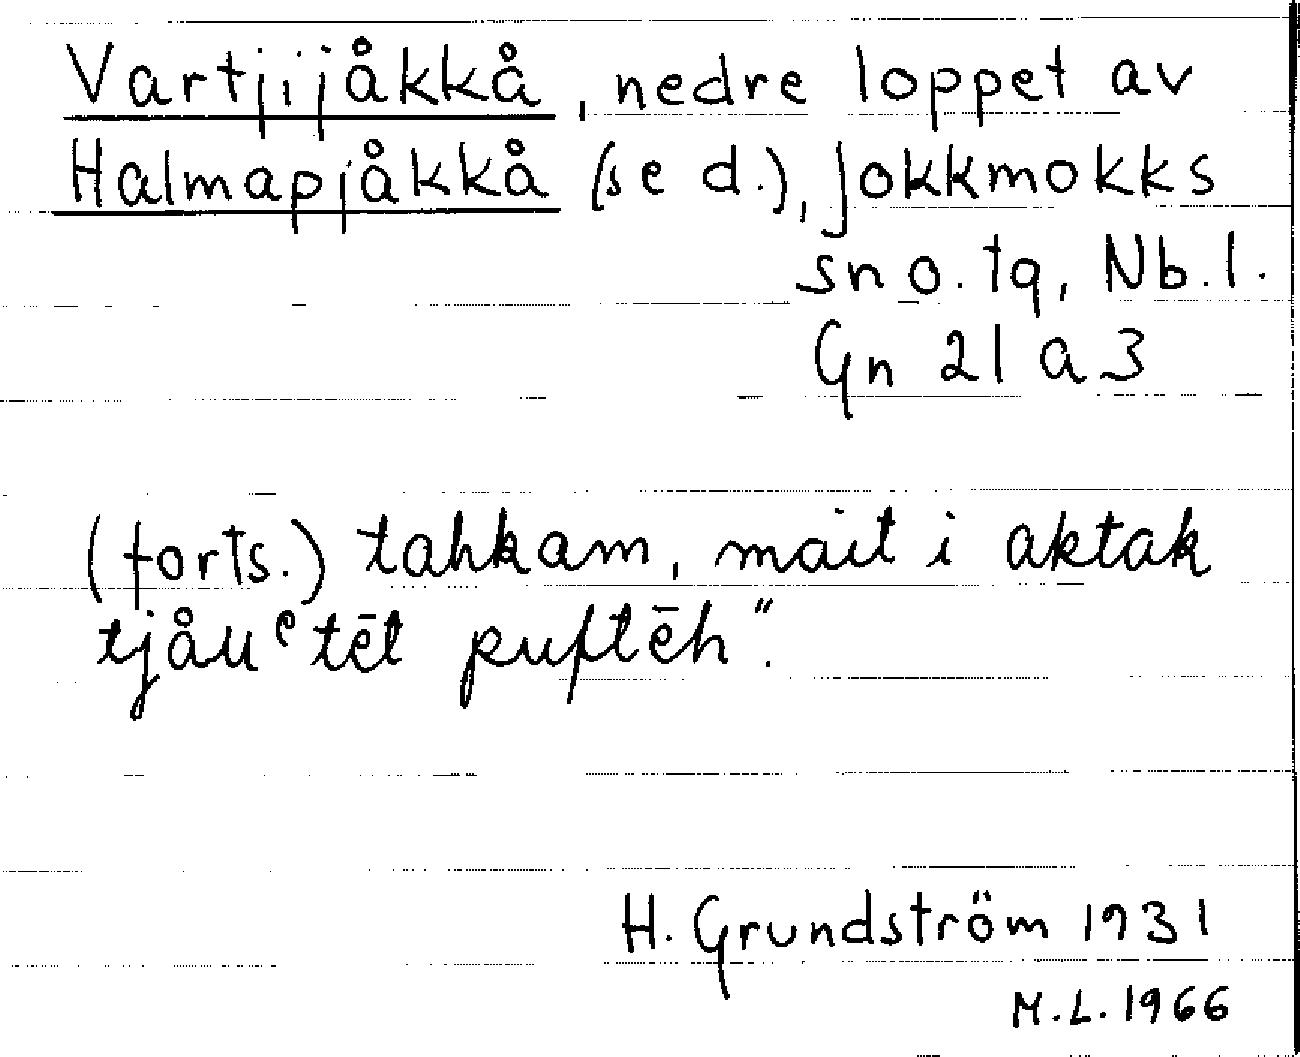 Vartjijåkkå, nedre loppet av
Halmapjåkkå (se d.), Jokkmokks
sn o. tg, Nb. l.
Gn 21 a 3
(forts.) tahkam, mait i aktak
tjåuʿtēt puftēh".
H. Grundström 1931
M.L. 1966